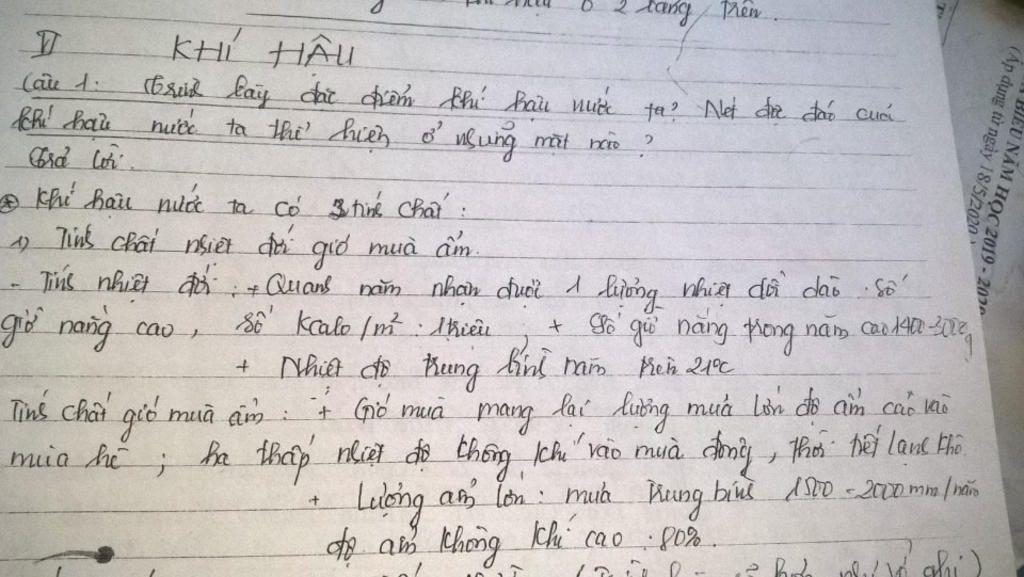 2 tầng trên.
VI KHÍ HẬU
Câu 1: Trình bày đặc điểm khí hậu nước ta? Nét độc đáo của
khí hậu nước ta thể hiện ở những mặt nào?
Trả lời:
* Khí hậu nước ta có 3 tính chất:
1) Tính chất nhiệt đới gió mùa ẩm.
- Tính nhiệt đới: + Quanh năm nhận được 1 lượng nhiệt dồi dào. Số
giờ nắng cao, số Kcalo/m²: 1 triệu + Số giờ nắng trong năm cao 1400-3000g
+ Nhiệt độ trung bình năm trên 21°C
Tính chất gió mùa ẩm: + Gió mùa mang lại lượng mưa lớn độ ẩm cao vào
mùa hè; hạ thấp nhiệt độ không khí vào mùa đông, thời tiết lạnh khô.
+ Lượng ẩm lớn: mưa trung bình 1500-2000mm/năm
độ ẩm không khí cao: 80%.
BIỂU NĂM HỌC 2019 - 2020
(Áp dụng từ ngày 18/5/2020)